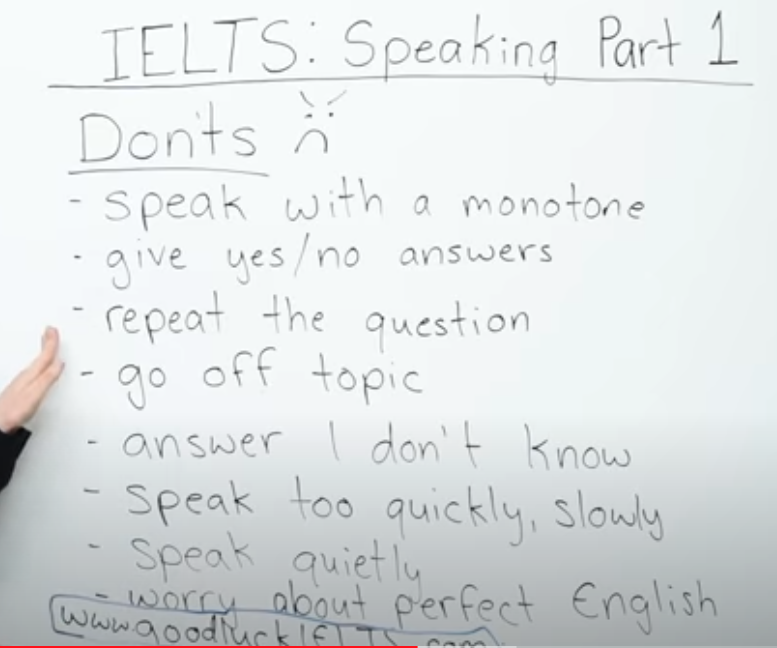 IELTS: Speaking Part 1
Don'ts
- speak with a monotone
- give yes/no answers
- repeat the question
- go off topic
- answer I don't know
- speak too quickly, slowly
- speak quietly
- worry about perfect English
www.goodluckIELTS.com